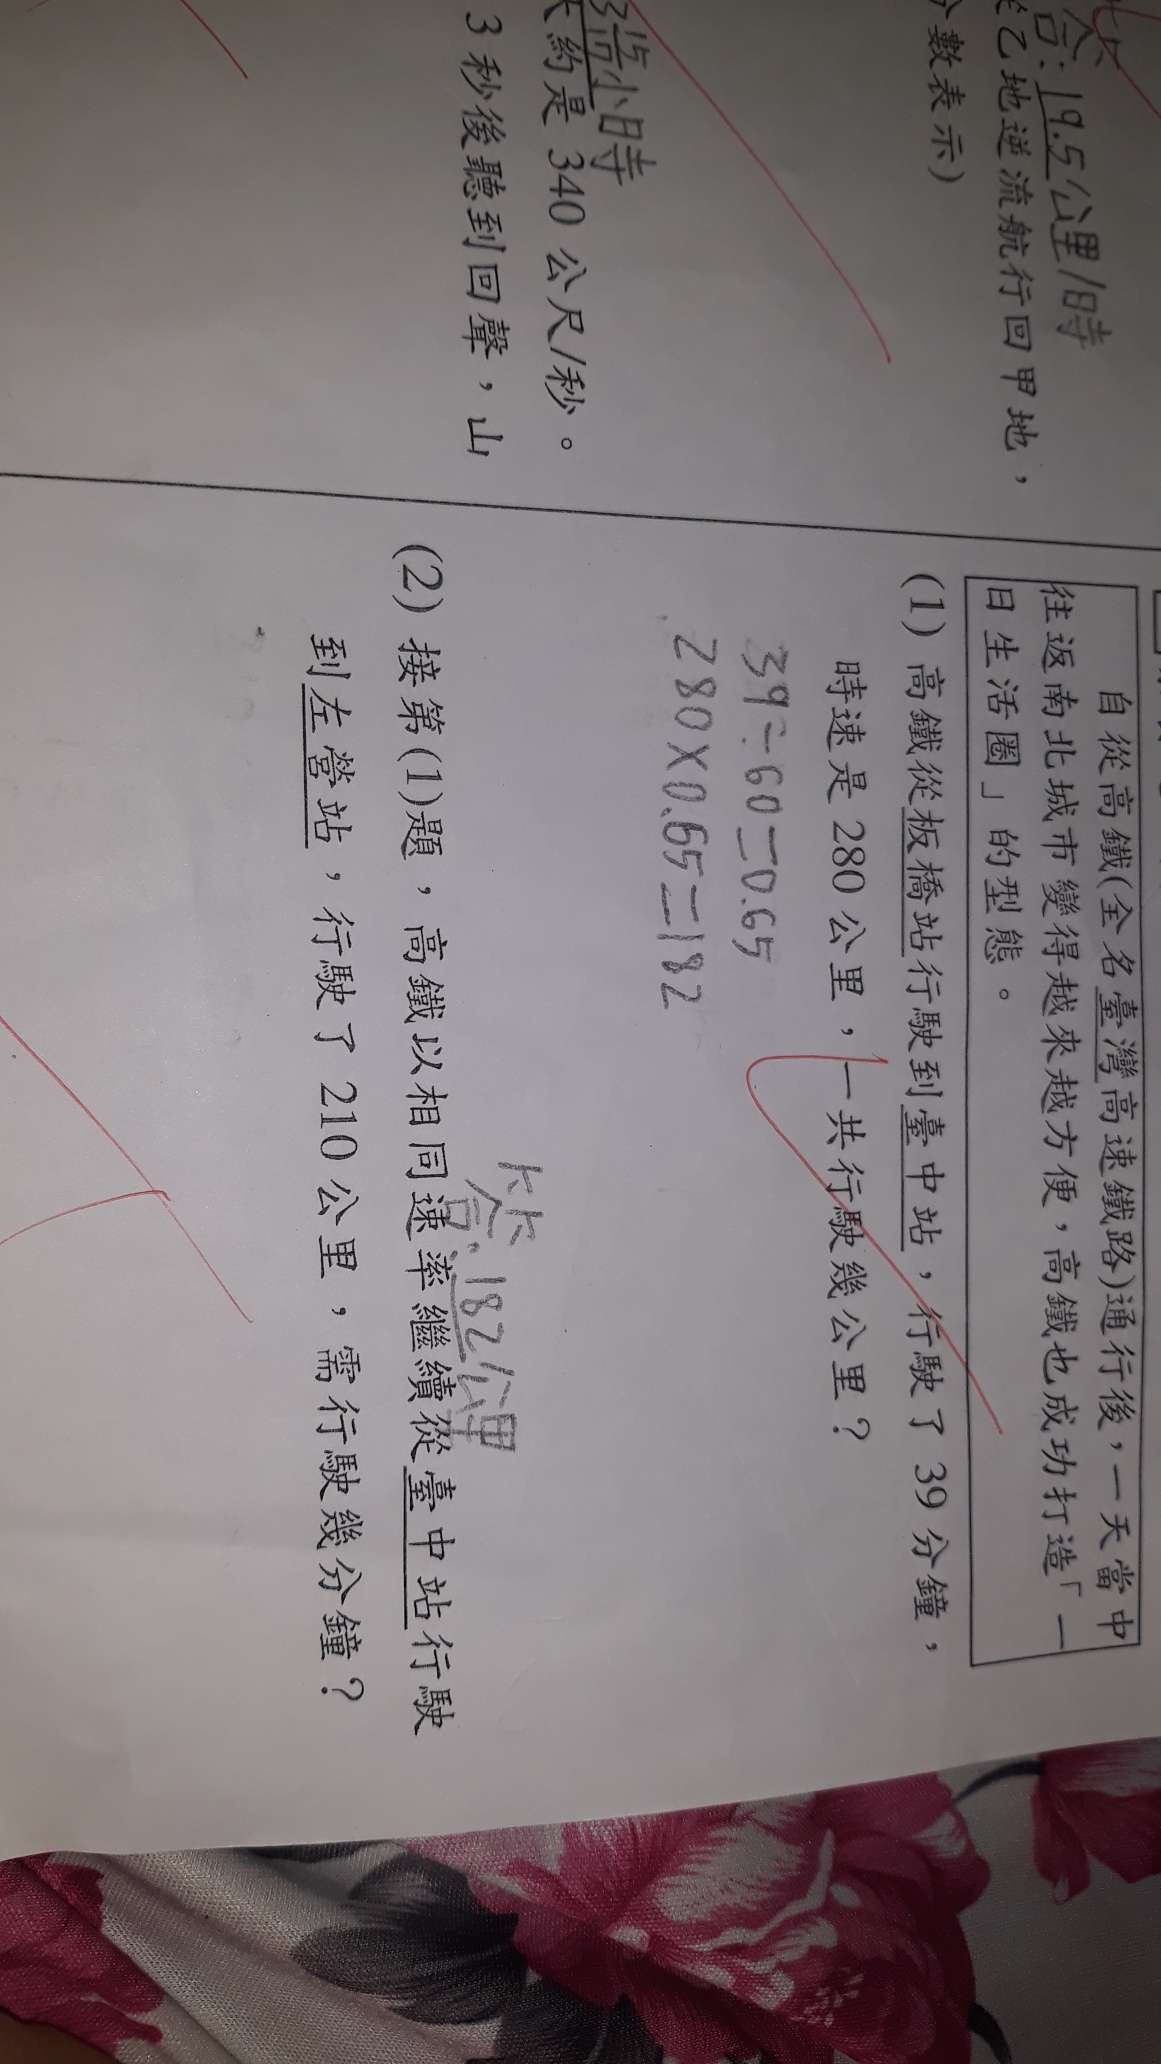 答:19.5公里/時
乙地逆流航行回甲地，
數表示)
小時
約是 340 公尺/秒。
3 秒後聽到回聲，山
自從高鐵(全名臺灣高速鐵路)通行後，一天當中
往返南北城市變得越來越方便，高鐵也成功打造「一
日生活圈」的型態。
(1) 高鐵從板橋站行駛到臺中站，行駛了 39 分鐘，
時速是 280 公里，一共行駛幾公里？
39÷60=0.65
280×0.65=182
答:182公里
(2) 接第(1)題，高鐵以相同速率繼續從臺中站行駛
到左營站，行駛了 210 公里，需行駛幾分鐘？